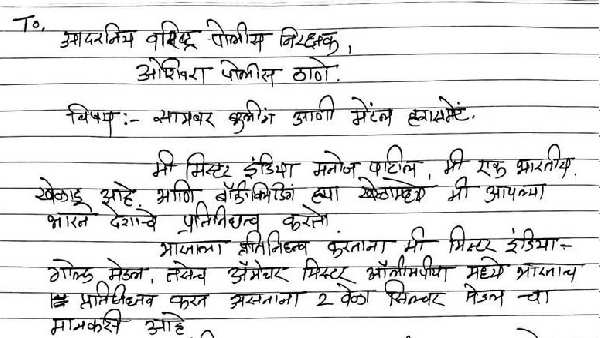 To,
आदरनिय वरिष्ठ पोलीस निरक्षक,
ओशिवरा पोलीस ठाणे.
विषय:- सायबर बुलींग आणी मेंटल हरासमेंट.
मी मिस्टर इंडिया मनोज पाटील, मी एक भारतीय
खेळाडू आहे. आणि बॉडीबिल्डिंग ह्या खेळामध्ये मी आपल्या
भारत देशाचे प्रतिनिधत्व करतो.
भारताला प्रतिनिधत्व करताना मी मिस्टर इंडिया-
गोल्ड मेडल, तसेच अ‍ॅमेचर मिस्टर ऑलीम्पीया मध्ये भारताच
प्रतिनिधीत्व करत असताना 2 वेळा सिल्वर मेडल चा
मानकरी आहे